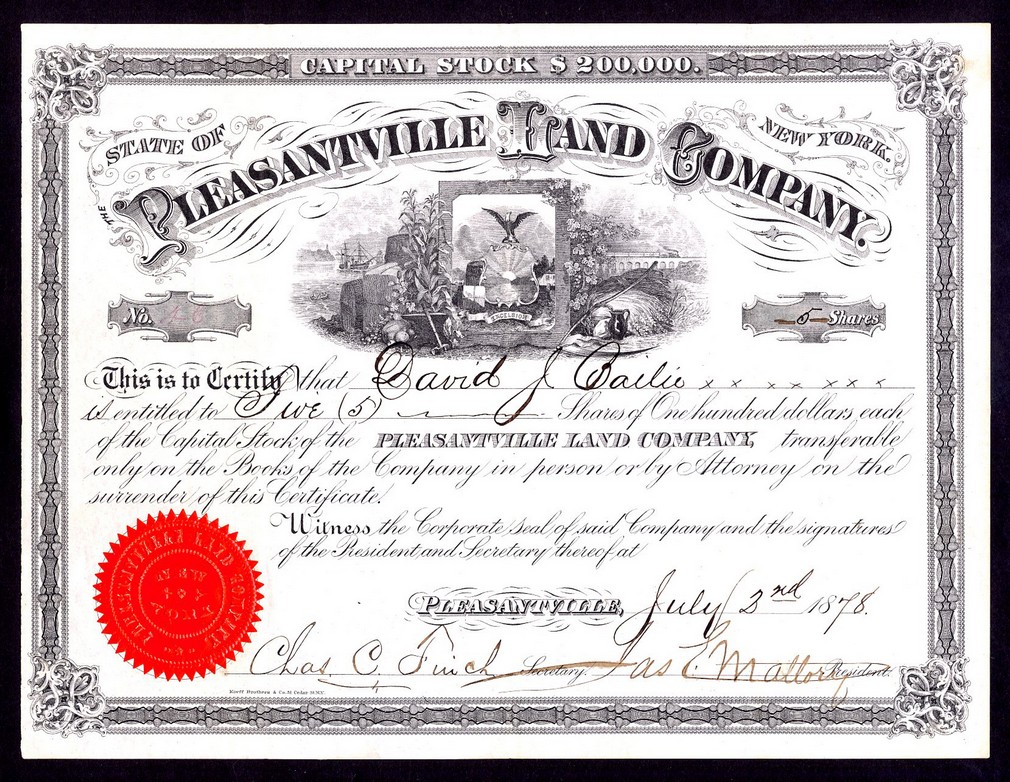 CAPITAL STOCK $200,000.
STATE OF NEW YORK.
THE PLEASANTVILLE LAND COMPANY.
EXCELSIOR
No.
5 Shares
This is to Certify that David J Bailie x x x x x x x
is entitled to Five (5) Shares of One hundred dollars each
of the Capital Stock of the PLEASANTVILLE LAND COMPANY, transferable
only on the Books of the Company in person or by Attorney on the
surrender of this Certificate.
Witness the Corporate seal of said Company and the signatures
of the President and Secretary thereof at
PLEASANTVILLE, July 3rd 1878.
THE PLEASANTVILLE LAND COMPANY
NEW YORK
Chas. C. Finch Secretary. Jas E Mallory President.